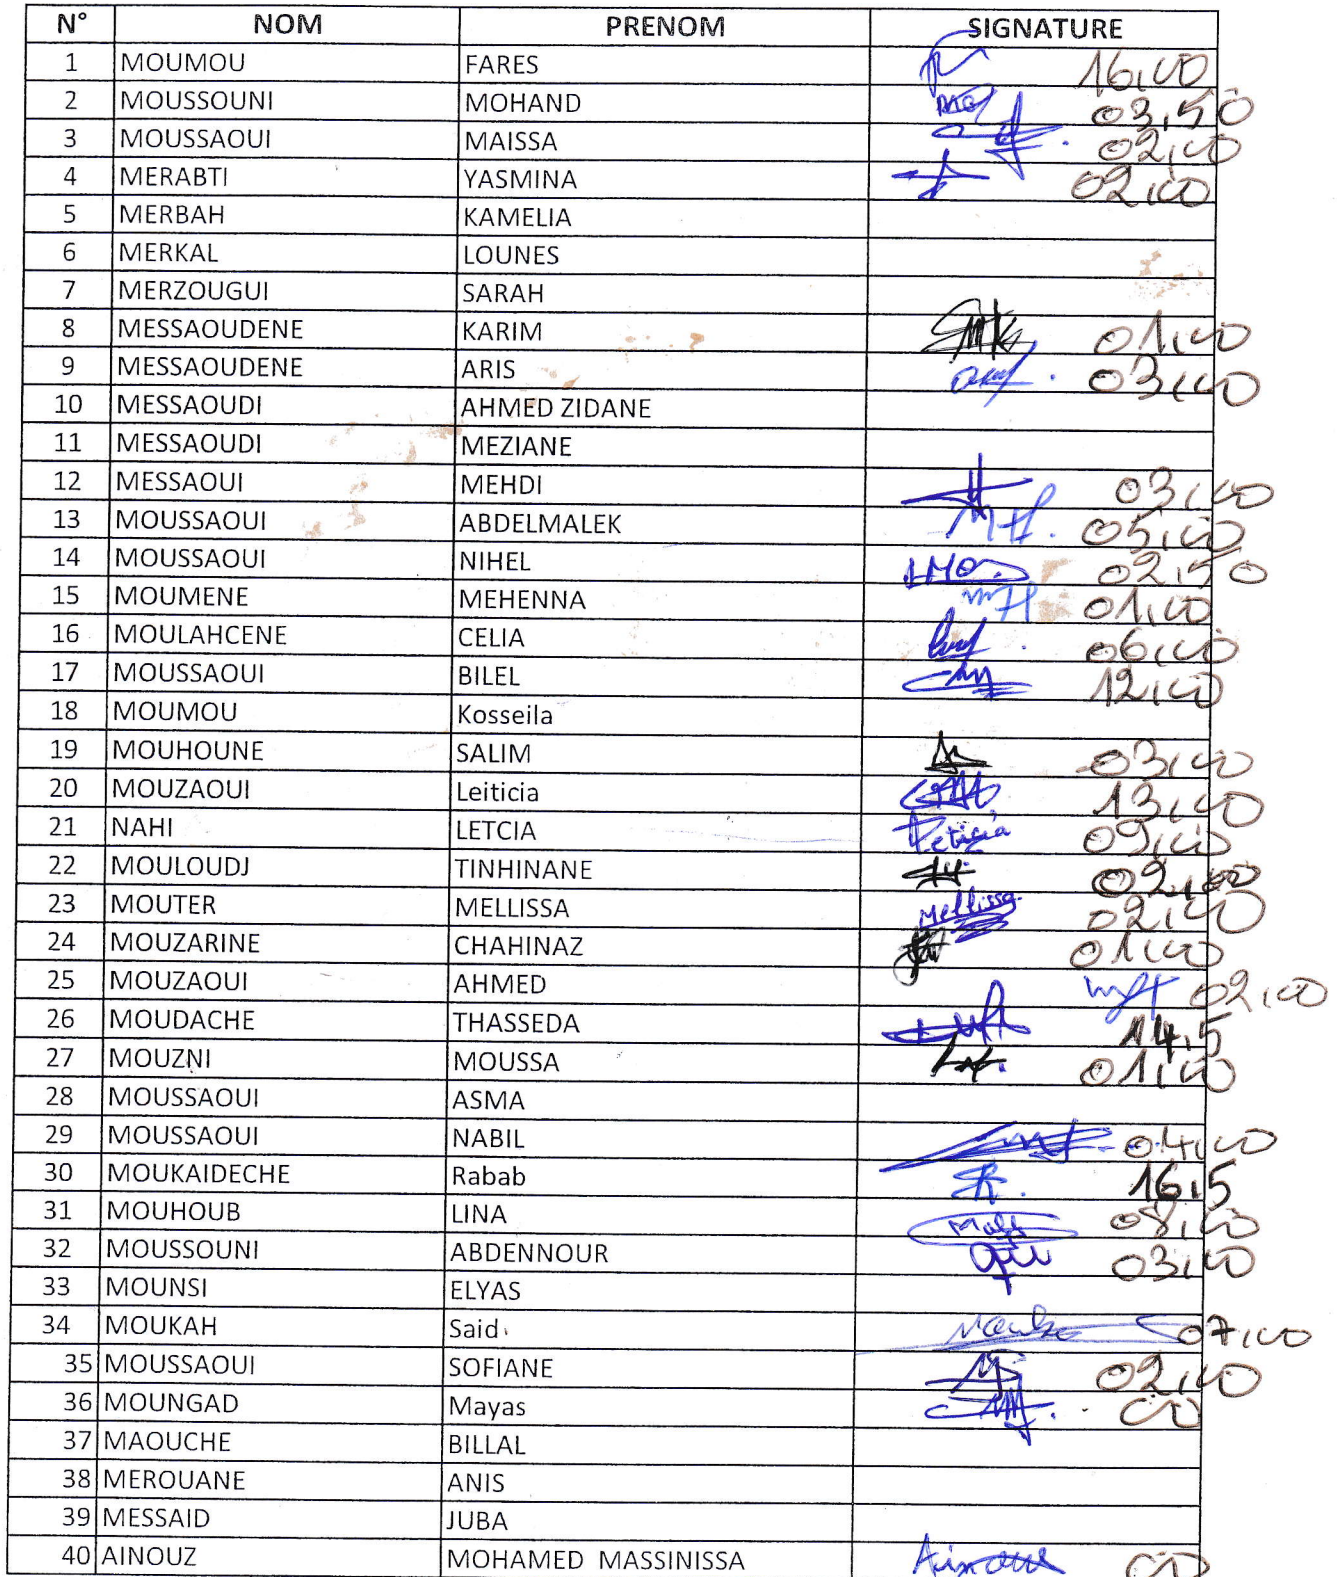 N° NOM PRENOM SIGNATURE
1 MOUMOU FARES 16,00
2 MOUSSOUNI MOHAND 03,50
3 MOUSSAOUI MAISSA 02,00
4 MERABTI YASMINA 02,00
5 MERBAH KAMELIA
6 MERKAL LOUNES
7 MERZOUGUI SARAH
8 MESSAOUDENE KARIM 01,00
9 MESSAOUDENE ARIS 03,00
10 MESSAOUDI AHMED ZIDANE
11 MESSAOUDI MEZIANE
12 MESSAOUI MEHDI 03,00
13 MOUSSAOUI ABDELMALEK 05,00
14 MOUSSAOUI NIHEL 02,50
15 MOUMENE MEHENNA 01,00
16 MOULAHCENE CELIA 06,00
17 MOUSSAOUI BILEL 12,00
18 MOUMOU Kosseila
19 MOUHOUNE SALIM 03,00
20 MOUZAOUI Leiticia 13,00
21 NAHI LETCIA Leticia 09,00
22 MOULOUDJ TINHINANE 02,00
23 MOUTER MELLISSA Mellissa 02,00
24 MOUZARINE CHAHINAZ 01,00
25 MOUZAOUI AHMED 02,00
26 MOUDACHE THASSEDA 14,5
27 MOUZNI MOUSSA 01,00
28 MOUSSAOUI ASMA
29 MOUSSAOUI NABIL 04,00
30 MOUKAIDECHE Rabab 16,5
31 MOUHOUB LINA 08,00
32 MOUSSOUNI ABDENNOUR 03,00
33 MOUNSI ELYAS
34 MOUKAH Said 07,00
35 MOUSSAOUI SOFIANE 02,00
36 MOUNGAD Mayas 00
37 MAOUCHE BILLAL
38 MEROUANE ANIS
39 MESSAID JUBA
40 AINOUZ MOHAMED MASSINISSA 00